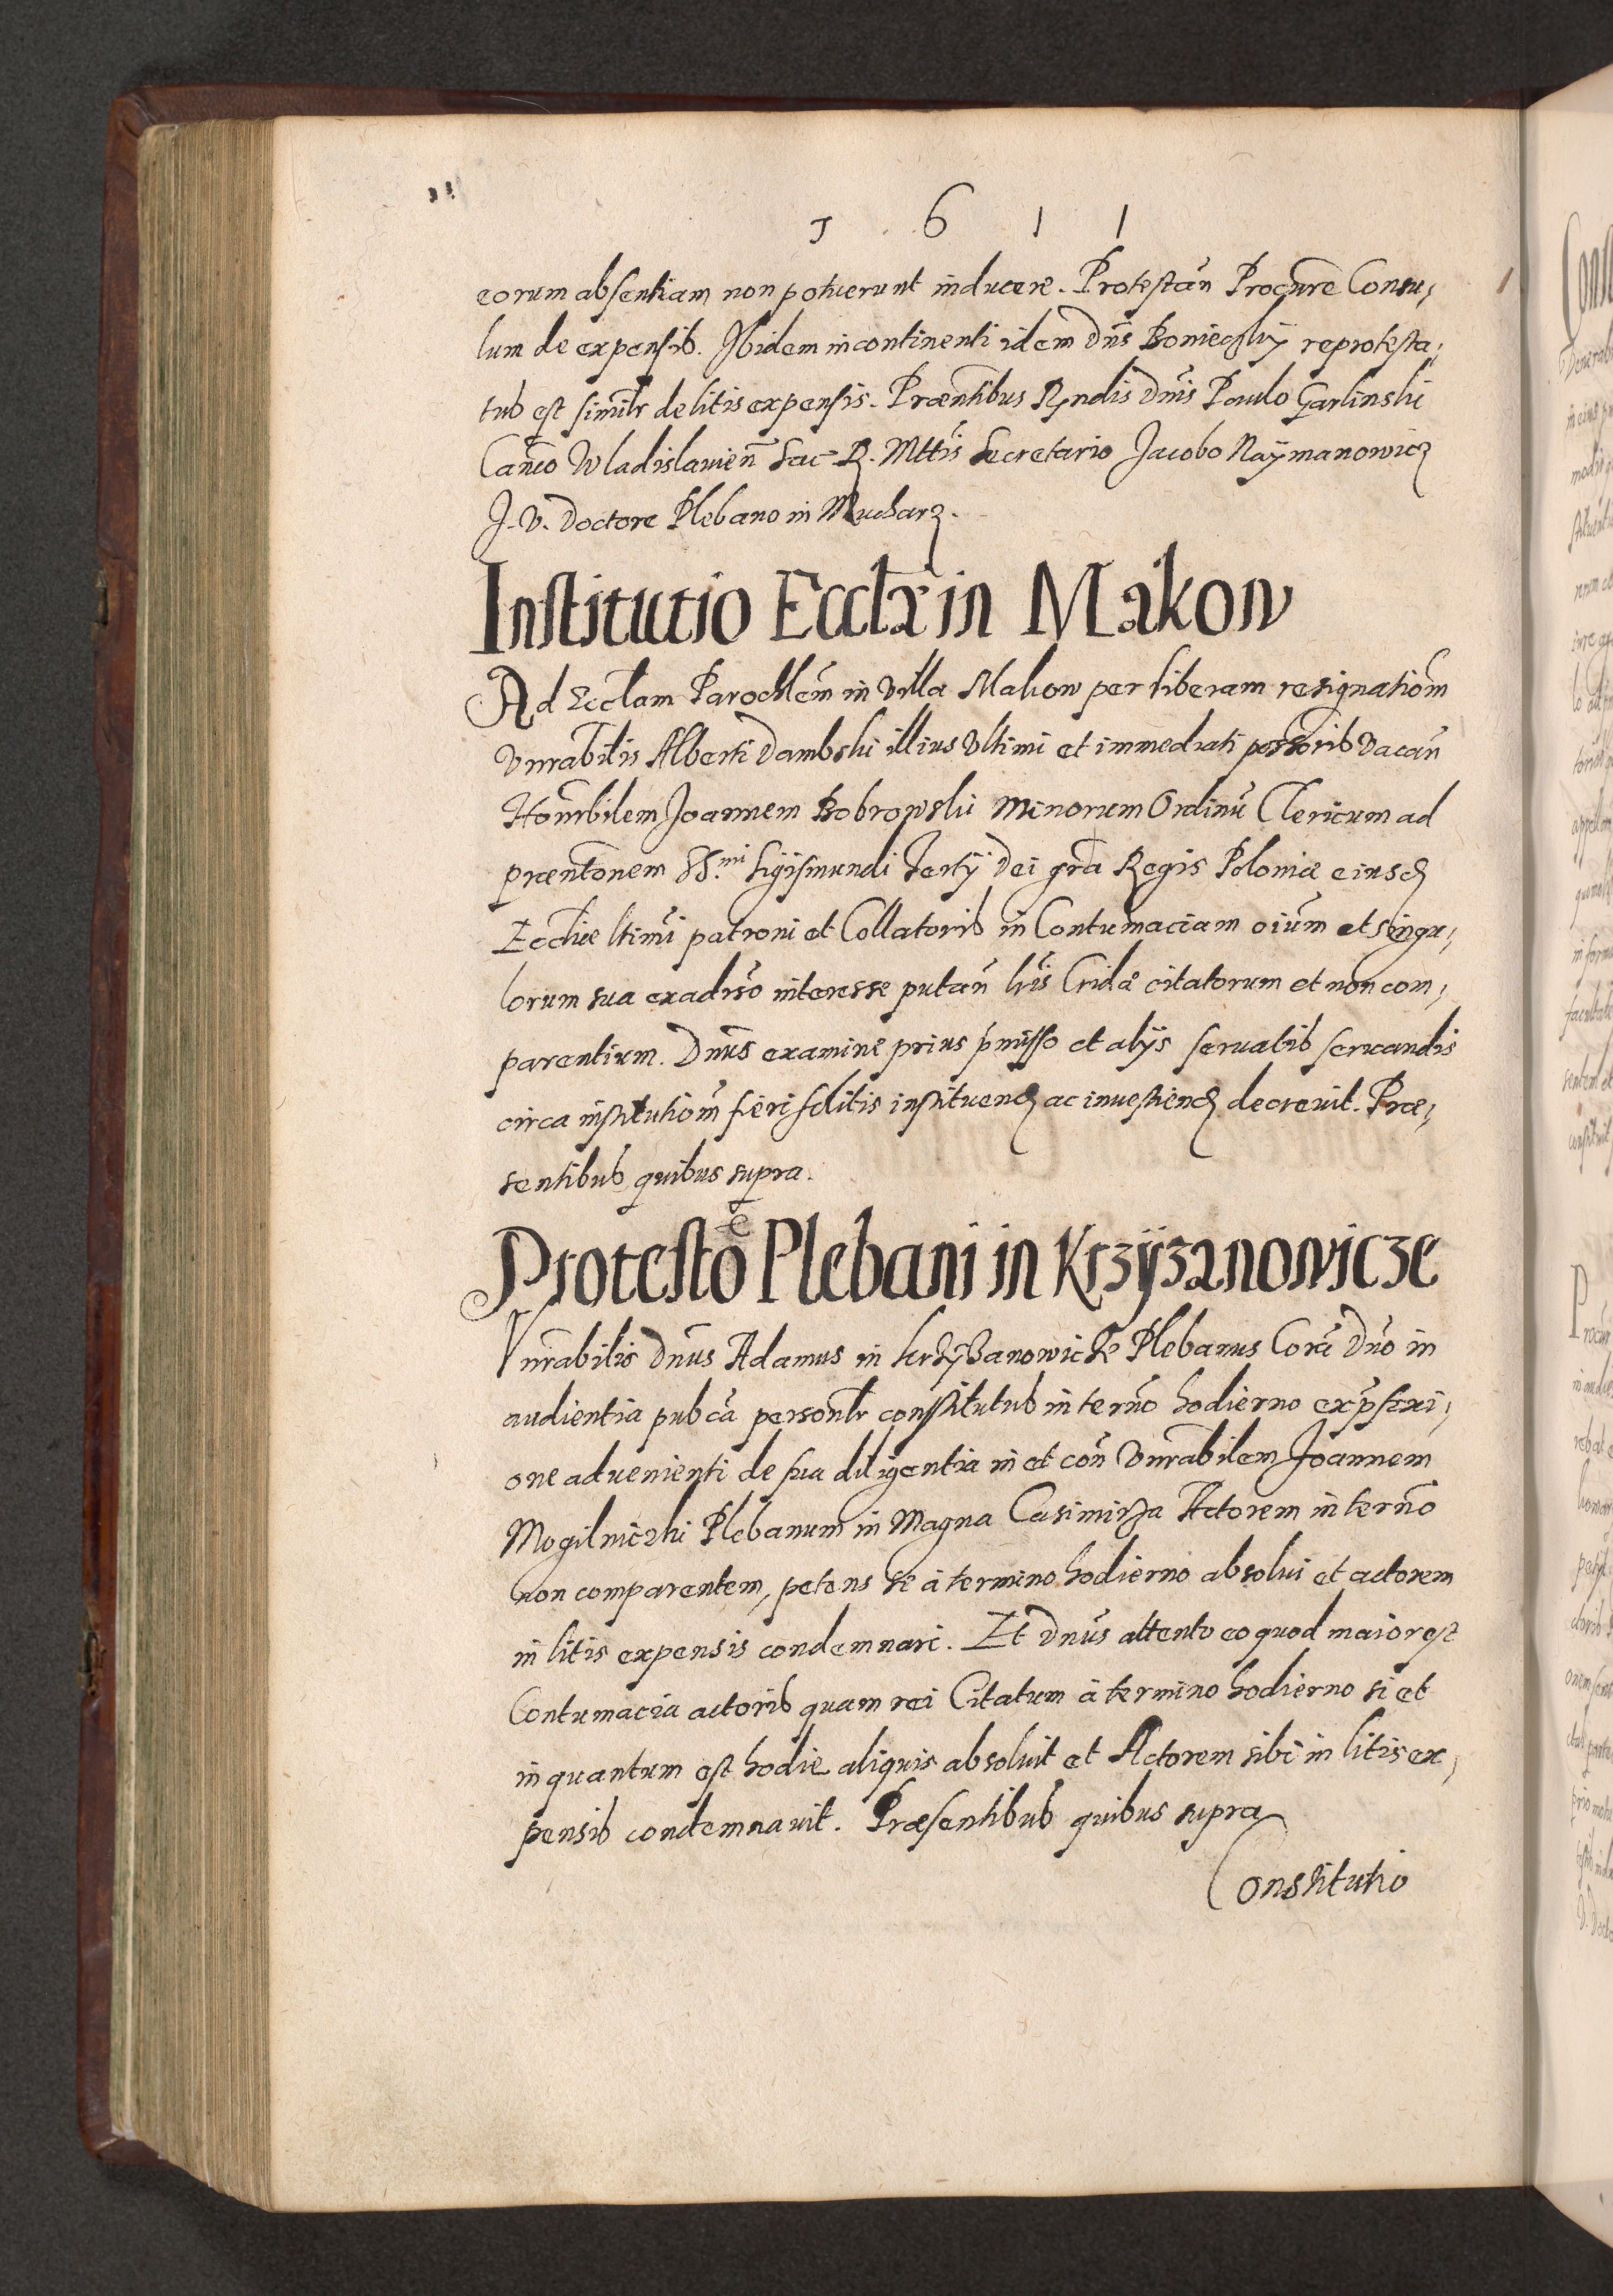 1 6 1 1
eorum absentiam non potuerunt inducere. Protestañ Procure Consu,
lum de expensib. Ibidem incontinenti idem dñs Boniecskij reprotesta,
tus est simil̃r de litis expensis. Præntibus Rṽndis dñis Paulo Garlinski
Cañco Wladislavieñ Sac. R. Mttis Secretario Jacobo Naymanowicz
J. V. Doctore Plebano in Mucharz.
Institutio Eccl̃æ in Makow
Ad Eccl̃am Parochlẽm in villa Makow per liberam resignatiom̃
Vnrabilis Alberti Dambski illius vltimi et immediati possoris vacañ
Honrbilem Joannem Bobrowski Minorum Ordinũ Clericum ad
præntonem SS.mi Sigismundi Tertij Dei gr̃a Regis Poloniæ eiusd
Eccl̃iæ ltimi patroni et Collatoris in Contumaciam oium̃ et singu,
lorum sua exadiṽso interesse putañ lris̃ Cridæ citatorum et non com,
parentium. Dnus̃ examine prius p̃misso et alijs seruatis seruandis
circa institutiom̃ fieri solitis instituend ac inuestiend decrevit. Præ,
sentibus quibus supra.
Protesto͠ Plebani in Krzyzanowicze
Vnrãbilis Dnus̃ Adamus in Krzyzanowicze Plebanus Corã Dño in
audientia pubcã personl̃r constitutus in termño hodierno ex p̃fixi,
one advenienti de sua diligentia in et coñ Vnrãbilem Joannem
Mogilniczki Plebanum in Magna Casimirza Actorem in termño
non comparentem, petens se à termino hodierno absolui et actorem
in litis expensis condemnari. Et Dnus̃ attento eo quod maior est
Contumacia actoris quam rei Citatum à termino hodierno si et
in quantum est hodie aliquis absoluit et Actorem sibi in litis ex,
pensis condemnauit. Præsentibus quibus supra
Constitutio